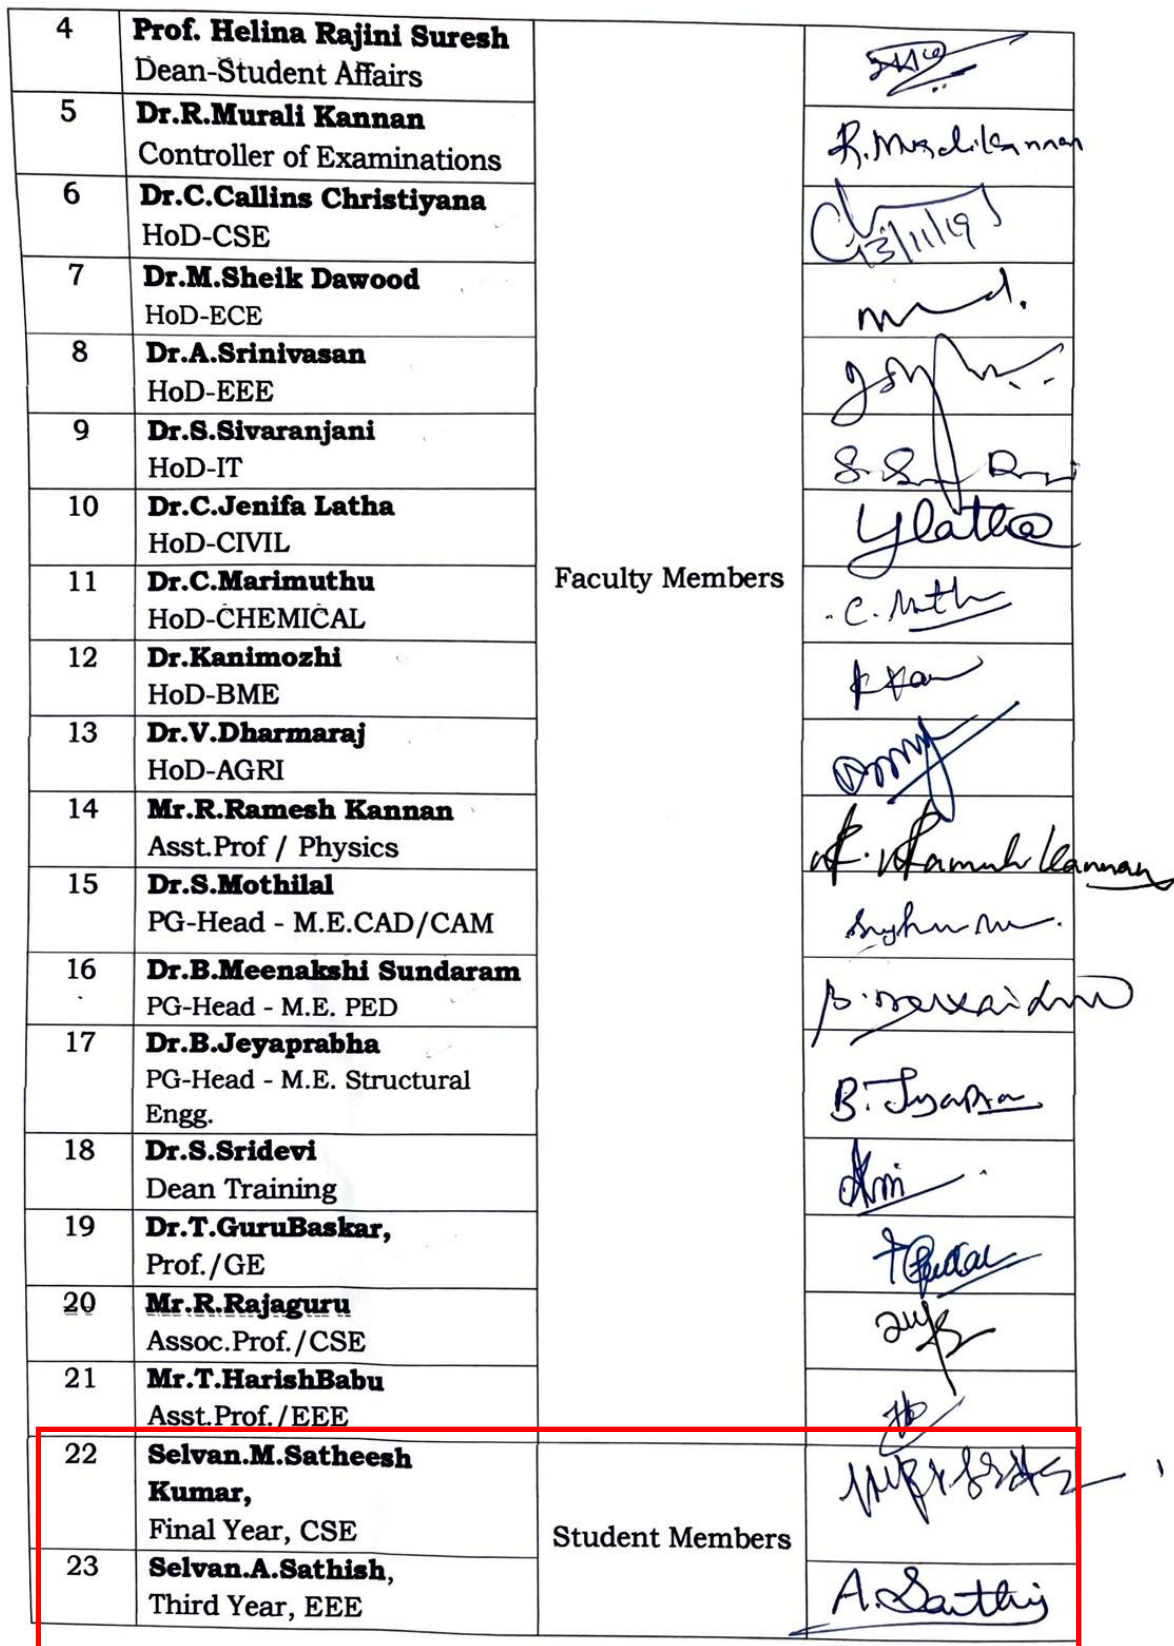 4 Prof. Helina Rajini Suresh
Dean-Student Affairs
5 Dr.R.Murali Kannan
Controller of Examinations
R.Muralikannan
6 Dr.C.Callins Christiyana
HoD-CSE
13/11/19
7 Dr.M.Sheik Dawood
HoD-ECE
8 Dr.A.Srinivasan
HoD-EEE
9 Dr.S.Sivaranjani
HoD-IT
10 Dr.C.Jenifa Latha
HoD-CIVIL
Faculty Members
11 Dr.C.Marimuthu
HoD-CHEMICAL
12 Dr.Kanimozhi
HoD-BME
13 Dr.V.Dharmaraj
HoD-AGRI
14 Mr.R.Ramesh Kannan
Asst.Prof / Physics
15 Dr.S.Mothilal
PG-Head - M.E.CAD/CAM
16 Dr.B.Meenakshi Sundaram
PG-Head - M.E. PED
17 Dr.B.Jeyaprabha
PG-Head - M.E. Structural
Engg.
18 Dr.S.Sridevi
Dean Training
19 Dr.T.GuruBaskar,
Prof./GE
20 Mr.R.Rajaguru
Assoc.Prof./CSE
21 Mr.T.HarishBabu
Asst.Prof./EEE
22 Selvan.M.Satheesh
Kumar,
Final Year, CSE
Student Members
23 Selvan.A.Sathish,
Third Year, EEE